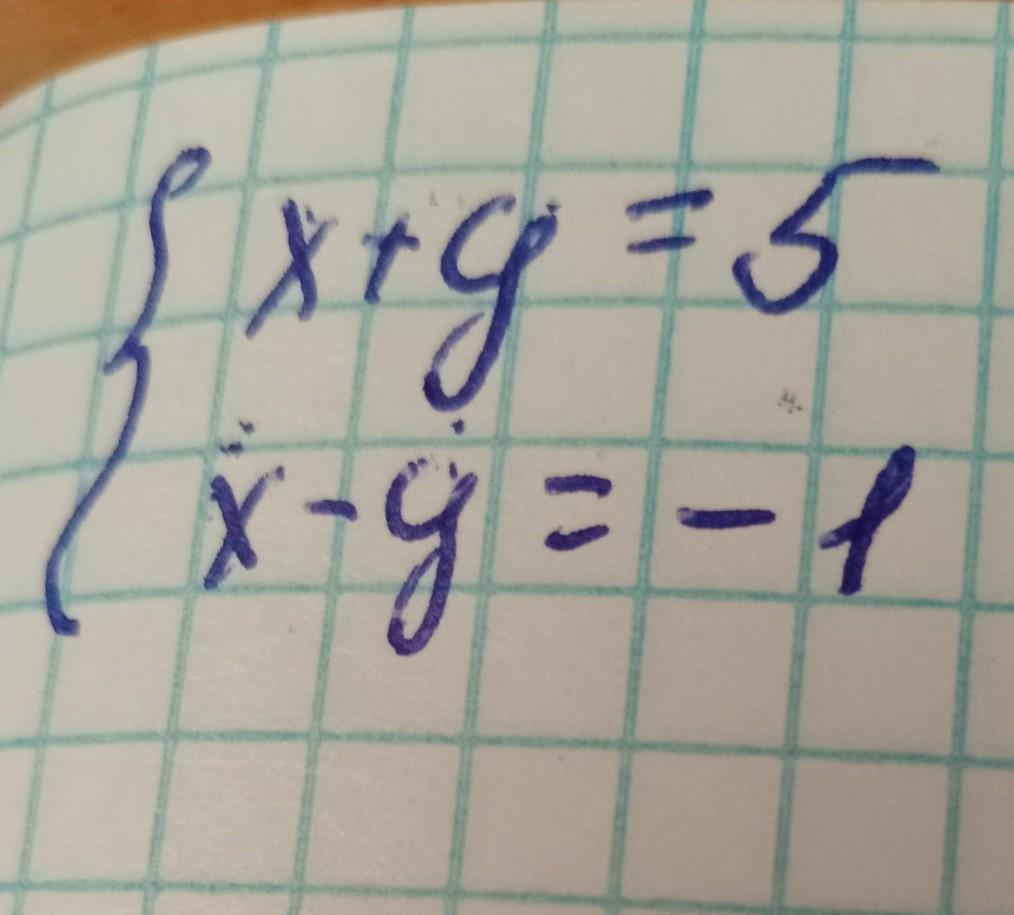 x+y=5
x-y=-1